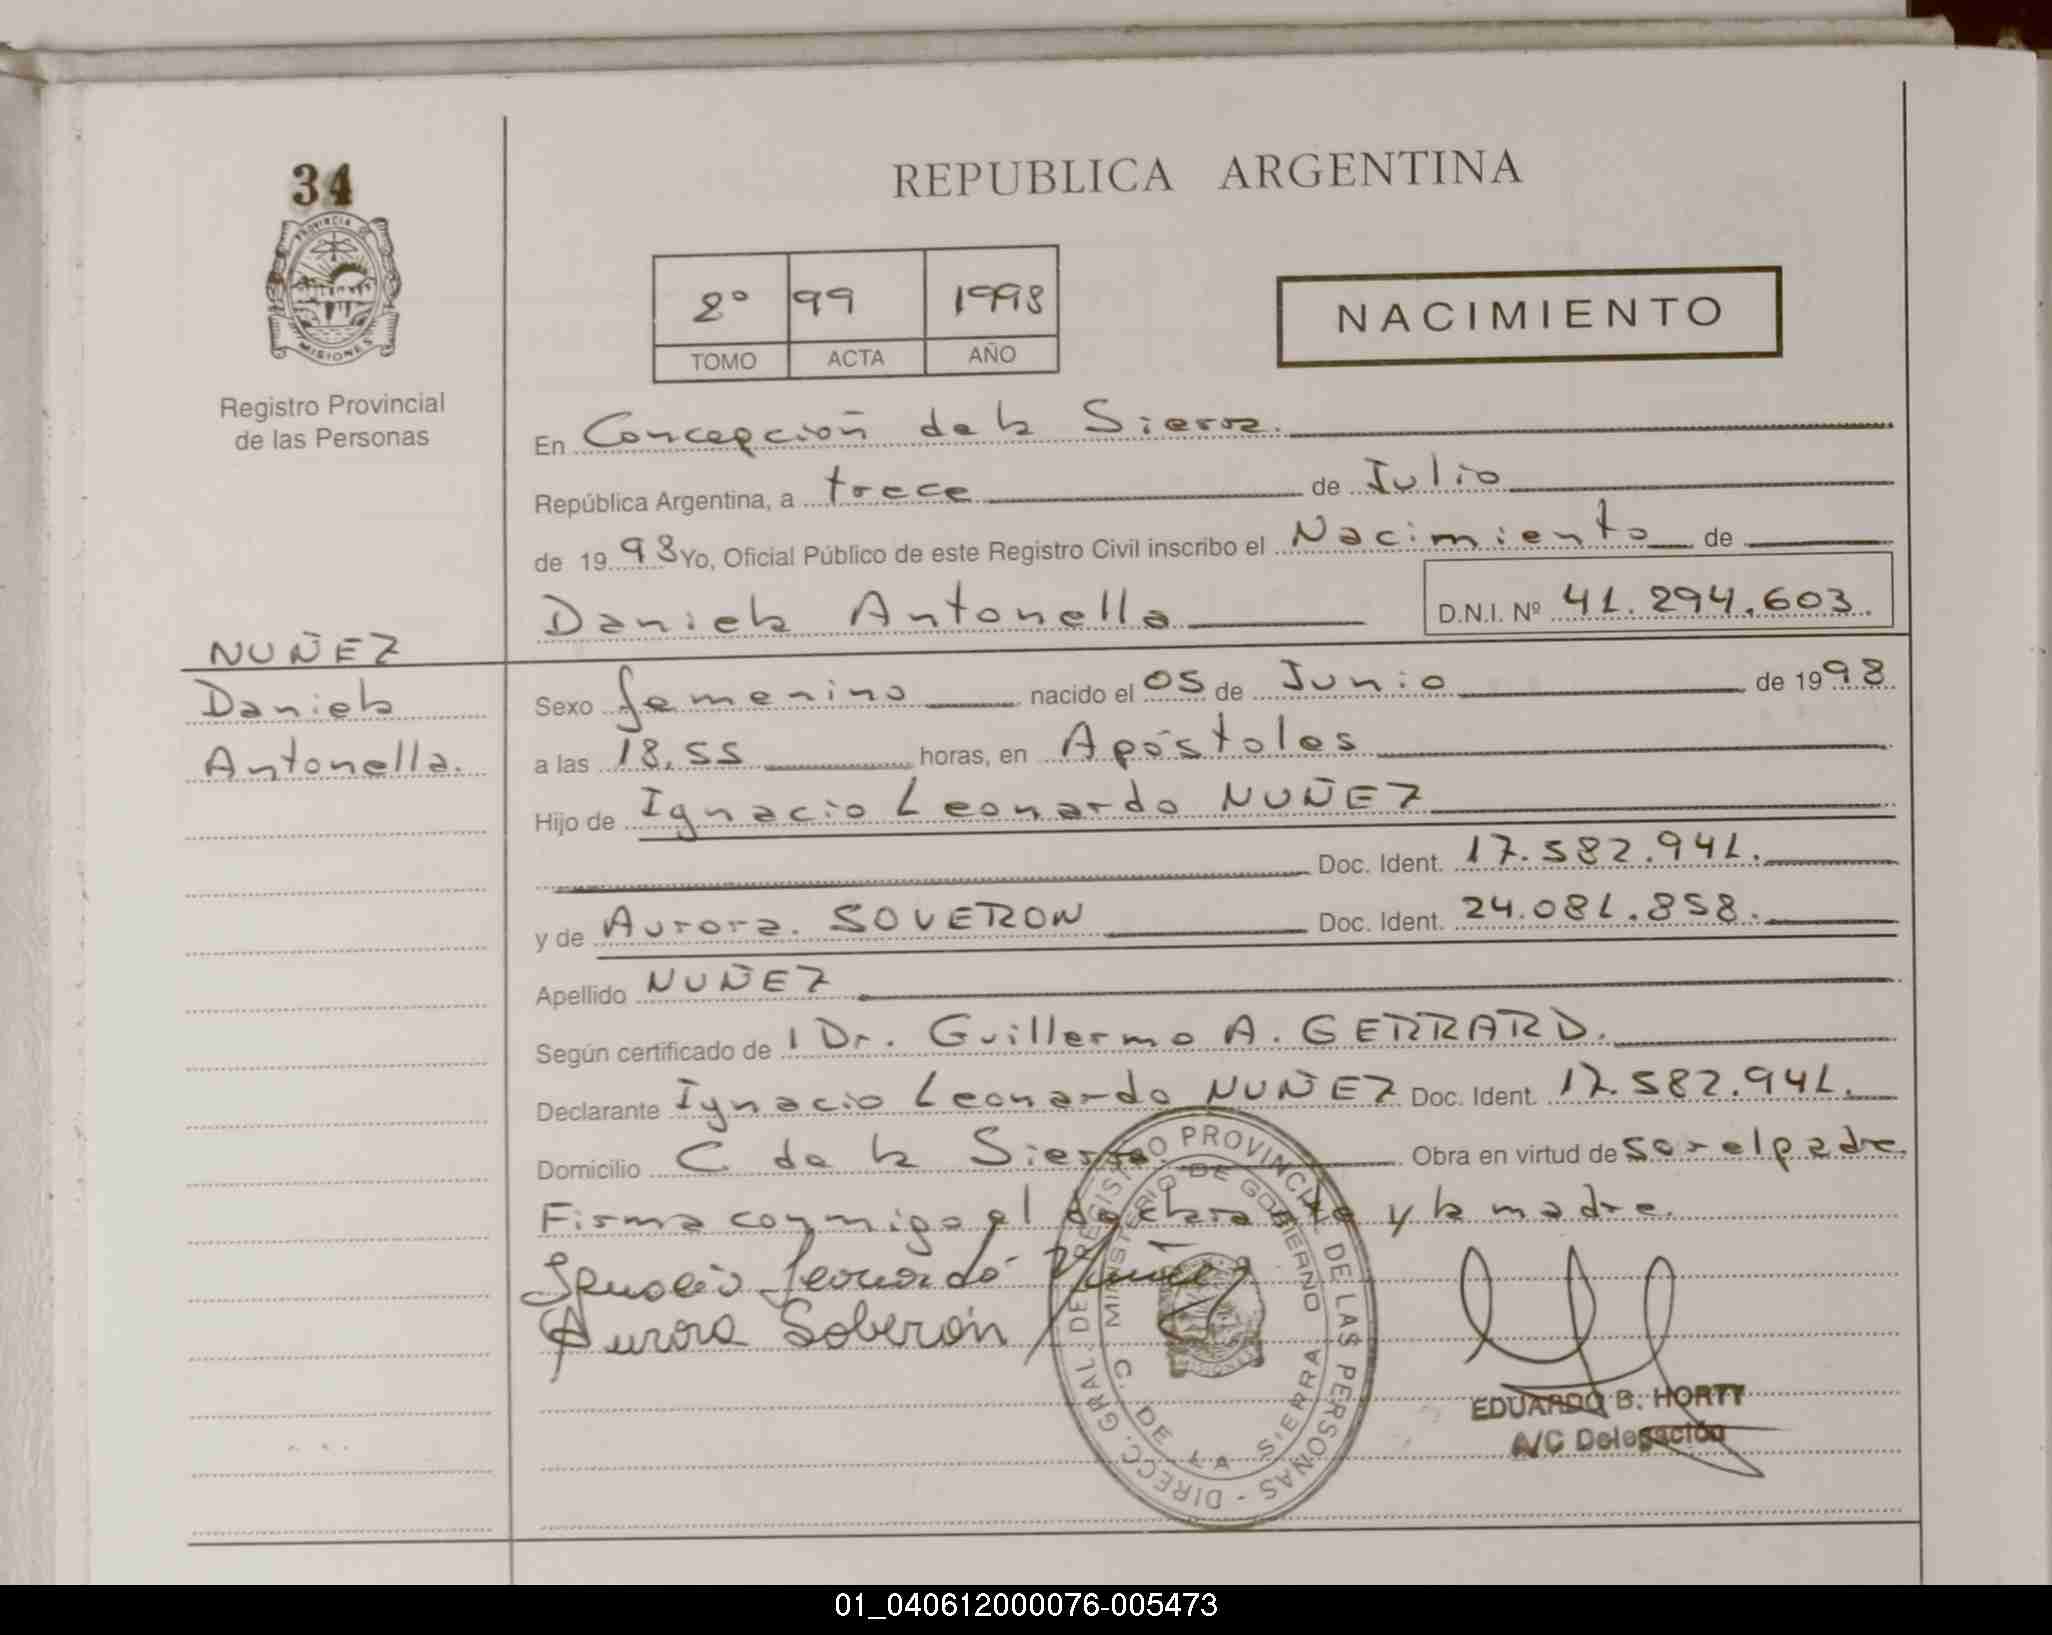 34
PROVINCIA DE
MISIONES
Registro Provincial
de las Personas
REPUBLICA ARGENTINA
2º 99 1998
TOMO ACTA AÑO
NACIMIENTO
En Concepción de la Sierra.
República Argentina, a trece de Julio
de 1998 Yo, Oficial Público de este Registro Civil inscribo el Nacimiento de
Daniela Antonella D.N.I. Nº 41.294.603.
NUÑEZ
Daniela
Antonella.
Sexo femenino nacido el 05 de Junio de 1998
a las 18,55 horas, en Apóstoles
Hijo de Ignacio Leonardo NUÑEZ
Doc. Ident. 17.582.941.
y de Aurora. SOVERON Doc. Ident. 24.081.858.
Apellido NUÑEZ
Según certificado de l Dr. Guillermo A. GERRARD.
Declarante Ignacio Leonardo NUÑEZ Doc. Ident. 17.582.941.
Domicilio C. de la Sierra. Obra en virtud de ser el padre.
Firma conmigo el declarante y la madre.
Ignacio Leonardo Nuñez
Aurora Soberón
DIRECC. GRAL. DE REGISTRO PROVINCIAL DE LAS PERSONAS -
MINISTERIO DE GOBIERNO
C. DE LA SIERRA
EDUARDO B. HORTT
A/C Delegación
01_040612000076-005473